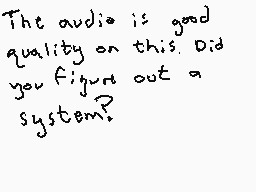 The audio is good
quality on this. Did
you figure out a
system?